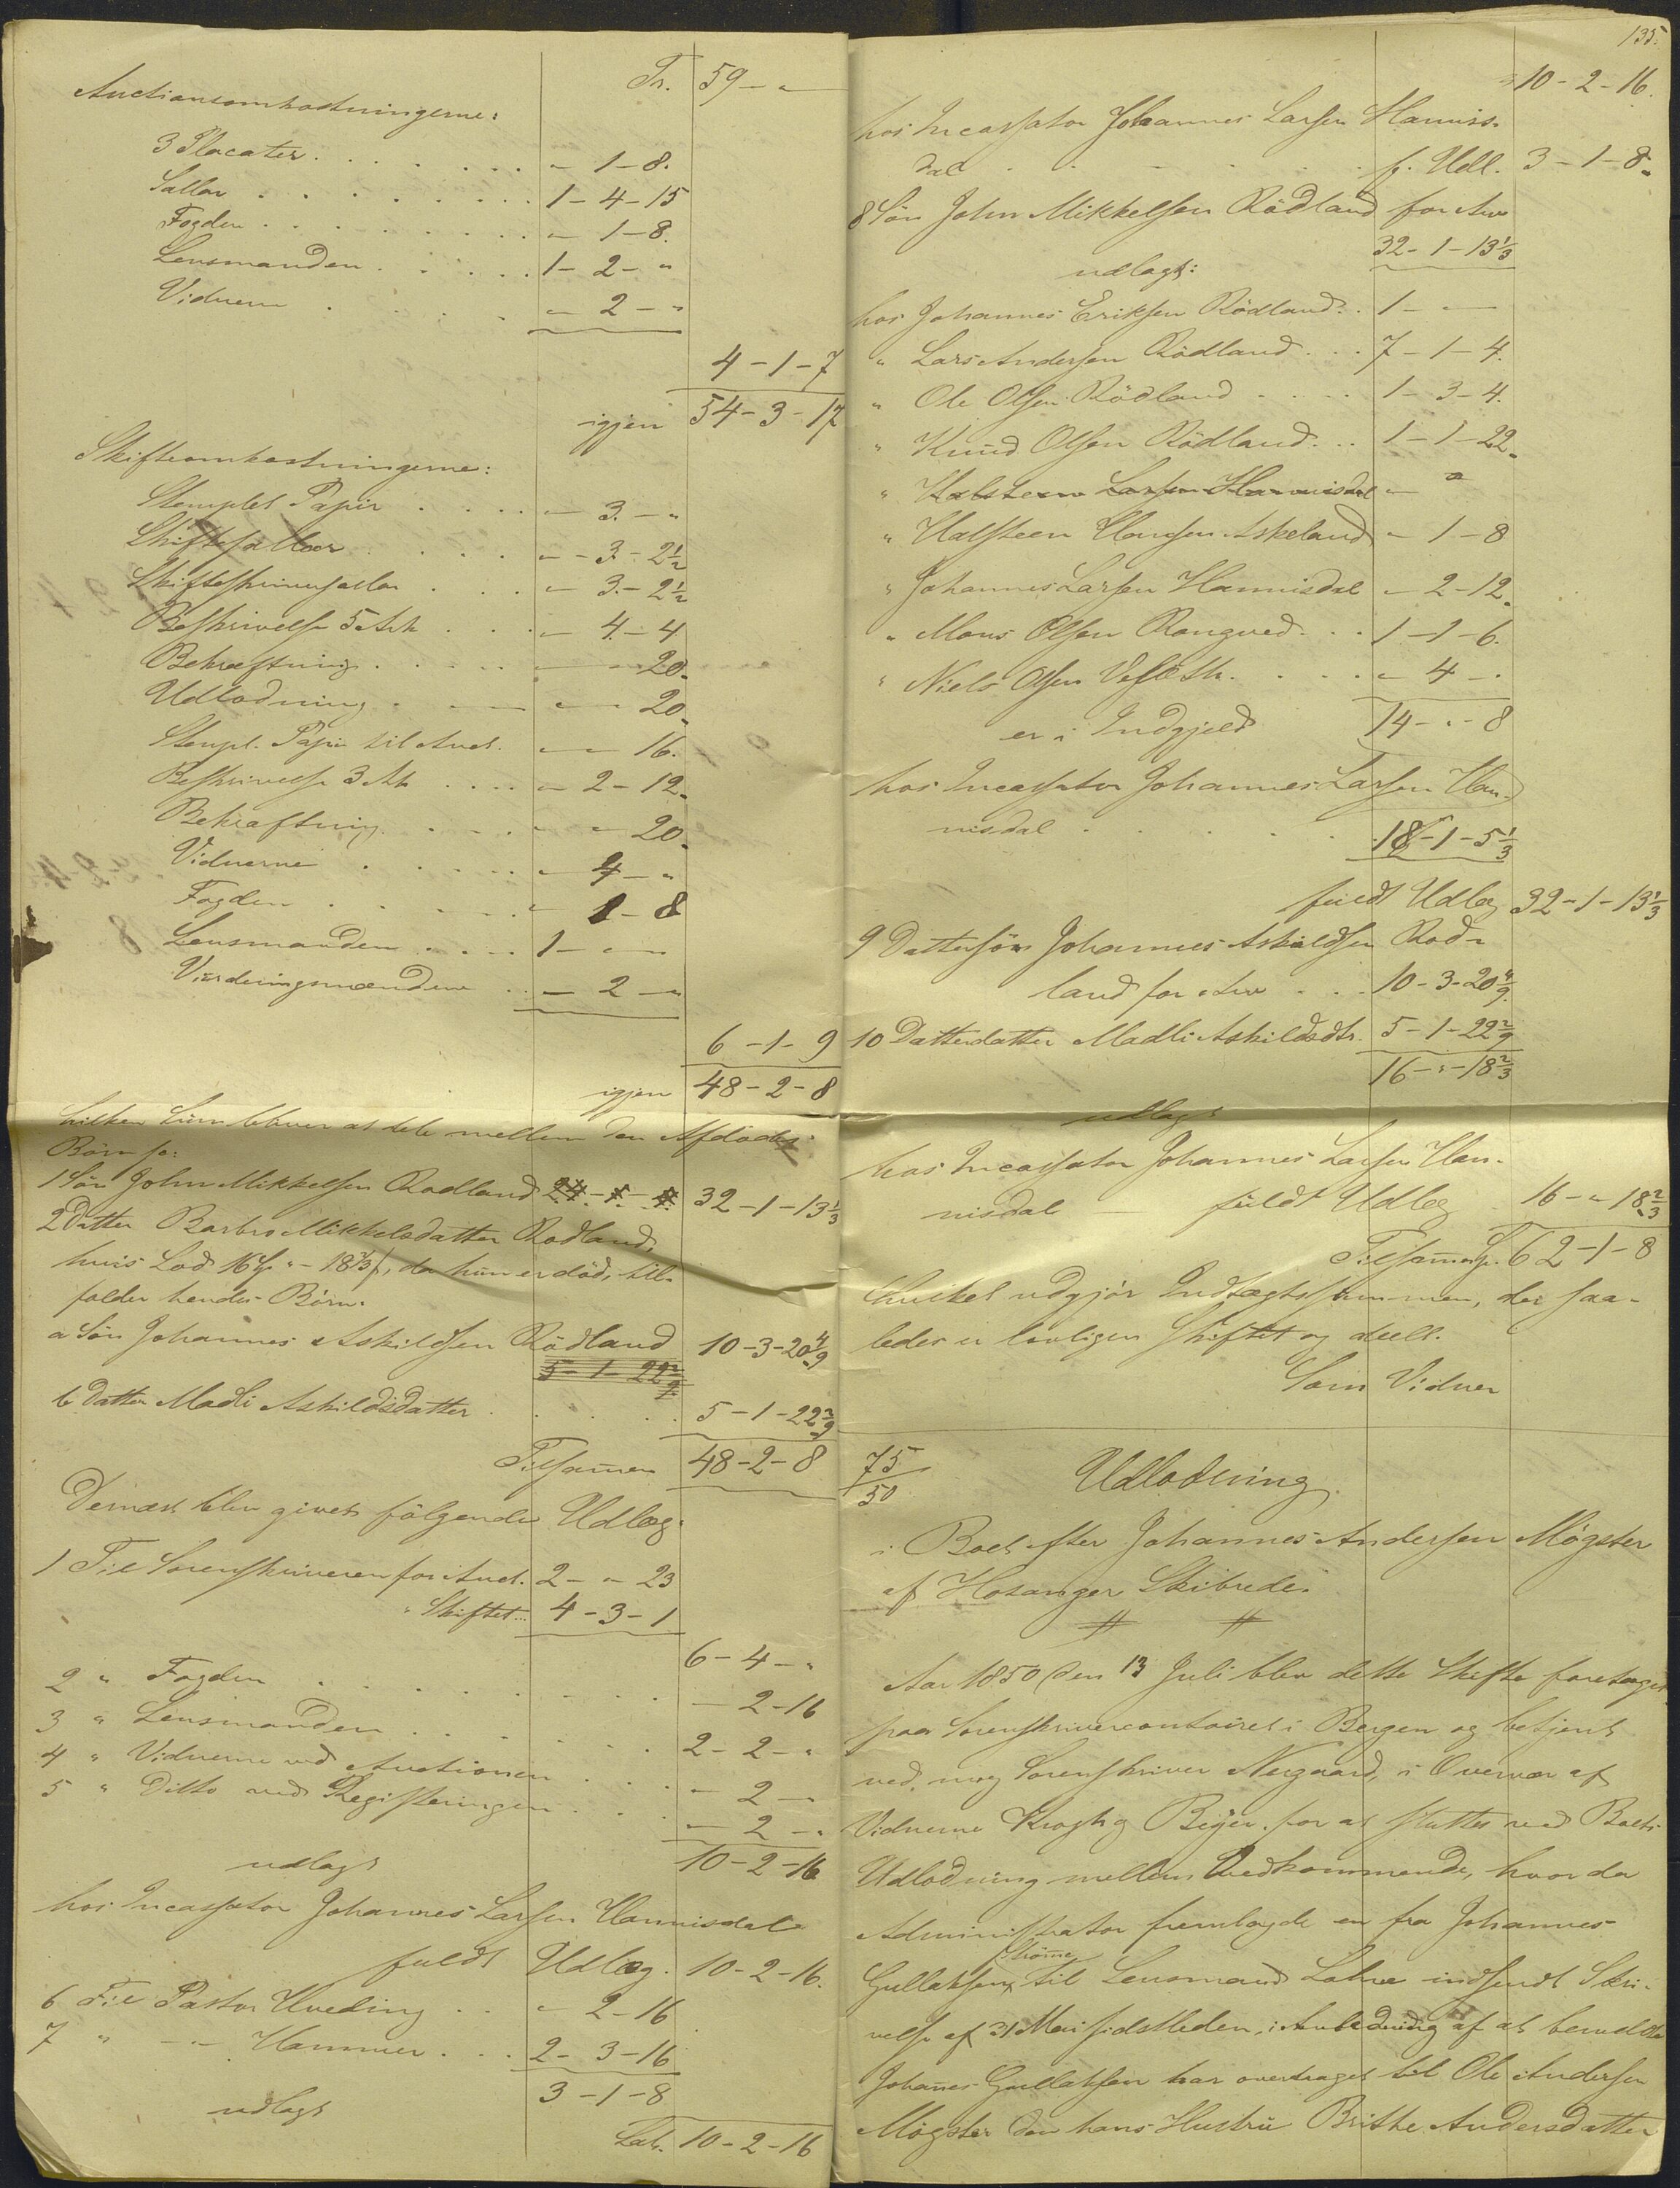 Tr. 59 - "
Auctionsomkostningerne:
3 Placater . . . " - 1 - 8.
Sallar . . . 1 - 4 - 15
Fogden . . . " - 1 - 8.
Lensmanden . . . 1 - 2 - "
Vidnerne . . . " - 2 - "
4 - 1 - 7
igjen 54 - 3 - 17
Skifteomkostningerne:
Stemplet Papir . . . " - 3 - "
Skiftesallar . . . " - 3 - 2½
Skifteskriversallar . . . " - 3 - 2½
Beskrivelse 5 Ark . . . " - 4 - 4
Bekræftning . . . " - " - 20.
Udlodning . . . " - " - 20.
Stempl. Papir til Auct. " - " - 16.
Beskrivelse 3 Ark . . . " - 2 - 12.
Bekræftning . . . " - " - 20.
Vidnerne . . . " - 4 - "
Fogden . . . " - 1 - 8
Lensmanden . . . 1 - " - "
Vurderingsmændene . . " - 2 - "
6 - 1 - 9
igjen 48 - 2 - 8
hvilken Sum bliver at dele mellem den Afdødes
Børn so:
1 Søn John Mikkelsen Rødland 32 - 1 - 13⅓
2 Datter Barbro Mikkelsdatter Rødland,
hvis Lod 16 Sp " - 18⅔ s, da hun er død, til-
falder hendes Børn:
a Søn Johannes Askildsen Rødland 10 - 3 - 20 4/9
5 - 1 - 22 2/9
b Datter Madli Askildsdatter . . . 5 - 1 - 22 2/9
Tilsammen 48 - 2 - 8
Dernæst blev givet følgende Udlæg:
1 Til Sorenskriveren for Auct. 2 - " - 23
" Skiftet... 4 - 3 - 1
6 - 4 - "
2 " Fogden . . . " - 2 - 16
3 " Lensmanden . . . 2 - 2 - "
4 " Vidnerne ved Auctionen . . . " - 2 - "
5 " Ditto ved Registeringen . . . " - 2 - "
udlagt 10 - 2 - 16
hos Incassator Johannes Larsen Hannisdal
fuldt Udlæg. 10 - 2 - 16.
6 Til Pastor Uveding . . " - 2 - 16
7 " - " - Hammer . . . 2 - 3 - 16
3 - 1 - 8
udlagt
Lat. 10 - 2 - 16
135.
10 - 2 - 16.
hos Incassator Johannes Larsen Hannis-
dal . . . f. Udl. 3 - 1 - 8.
8 Søn John Mikkelsen Rødland for Arv
32 - 1 - 13⅓
udlagt:
hos Johannes Eriksen Rødland . . 1 - " -
" Lars Andersen Rødland . . . 7 - 1 - 4.
" Ole Olsen Rødland . . . 1 - 3 - 4.
" Knud Olsen Rødland . . . 1 - 1 - 22.
" Halsteen Larsen Hannisdal " - "
" Halsteen Hansen Askeland " - 1 - 8
" Johannes Larsen Hannisdal " - 2 - 12.
" Mons Olsen Rongved . . . 1 - 1 - 6.
" Niels Olsen Veseth . . . " - 4 - .
er i Indgjeld 14 - " - 8
hos Incassator Johannes Larsen Han-
nisdal . . . 18 - 1 - 5⅓
fuldt Udlæg 32 - 1 - 13⅓
9 Dattersøn Johannes Askildsen Rød-
land for Arv . . . 10 - 3 - 20 4/9
10 Datterdatter Madli Askildsdtr. 5 - 1 - 22 2/9
16 - " - 18⅔
udlagt
hos Incassator Johannes Larsen Han-
nisdal fuldt Udlæg 16 - " - 18⅔
Tilsammen Sp. 62 - 1 - 8
Hvilket udgjør Indtægtssummen, der saa-
ledes er lovligen skiftet og deelt.
Som Vidner
75/50 Udlodning
i Boet efter Johannes Andersen Møgster
af Hosanger Skibrede.
Aar 1850 den 13 Juli blev dette Skifte foretaget
paa Sorenskrivercontoiret i Bergen og betjent
ved mig Sorenskriver Nergaard, i Overvær af
Vidnerne Krogh og Beyer, for at sluttes ved Boets
Udlodning mellem Vedkommende, hvor da
Administrator fremlagde en fra Johannes
Gullaksen Strømme til Lensmand Lohne indsendt Skri-
velse af 31 Mai sidstleden, i Anledning af at bemeldte
Johannes Gullaksen har overdraget til Ole Andersen
Møgster den hans Hustru Brithe Andersdatter